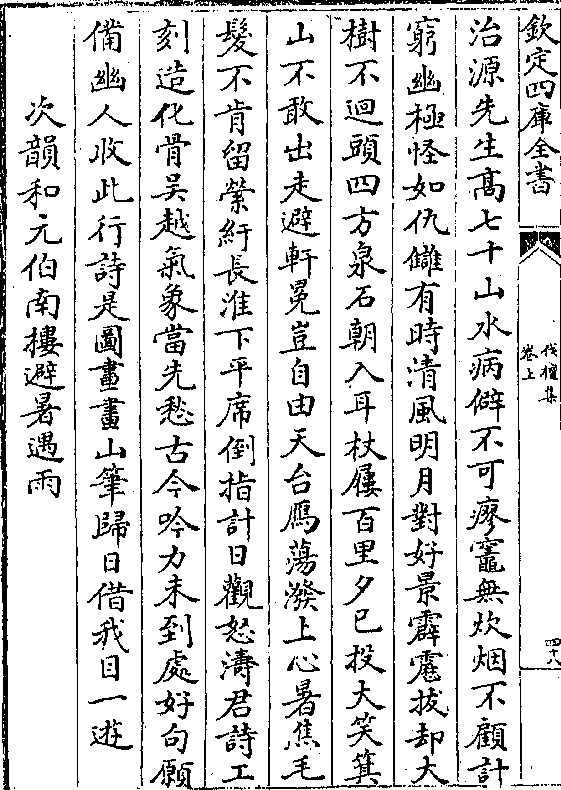 欽定四庫全書
伐檀集
卷上
四十八
治源先生髙七十山水病僻不可瘳竈無炊烟不顧計
窮幽極怪如仇讎有時清風明月對好景霹靂拔却大
樹不迴頭四方泉石朝入耳杖屨百里夕已投大笑箕
山不敢出走避軒冕豈自由天台鴈蕩潑上心暑焦毛
髮不肯留縈紆長淮下平席倒指計日觀怒濤君詩工
刻造化骨吴越氣象當先愁古今吟力未到處好句願
備幽人收此行詩是圖畫畫山筆歸日借我目一遊
次韻和元伯南樓避暑遇雨